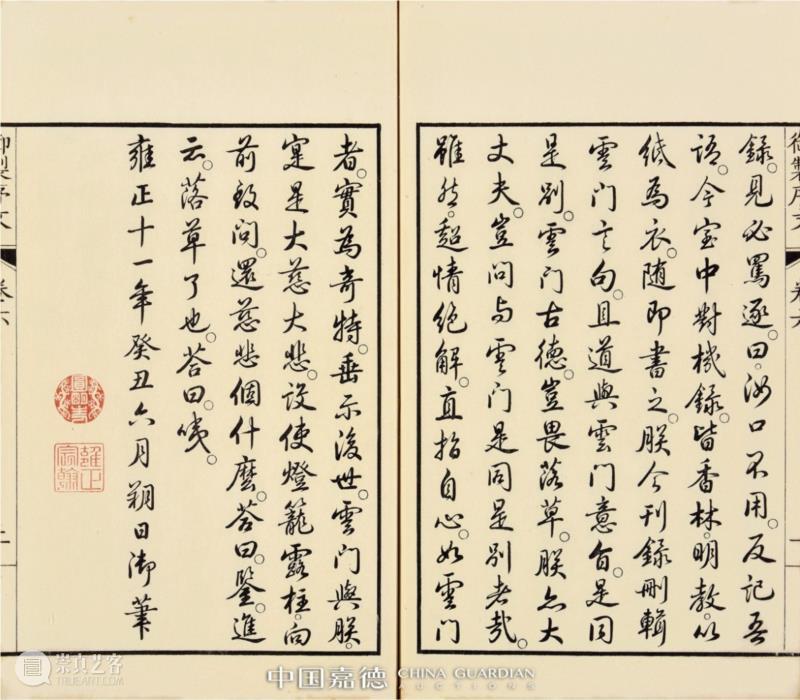 錄。見必罵逐。曰。汝口不用。反記吾
語。今室中對機錄。皆香林。明教。以
紙為衣。隨即書之。朕今刊錄刪輯
雲門言句。且道與雲門意旨。是同
是別。雲門古德。豈畏落草。朕亦大
丈夫。豈問與雲門是同是別者哉。
雖然。超情絕解。直指自心。如雲門
者。實為奇特。垂示後世。雲門與朕。
寔是大慈大悲。設使燈籠露柱。向
前致問。還慈悲個什麼。答曰。鑒。進
云。落草了也。答曰。咦。
雍正十一年癸丑六月朔日御筆
圓明主人
雍正宸翰
御製序文
卷六
二
御製序文
卷六
崇真艺客
TRUEART.COM
中国嘉德
CHINA GUARDIAN
AUCTIONS